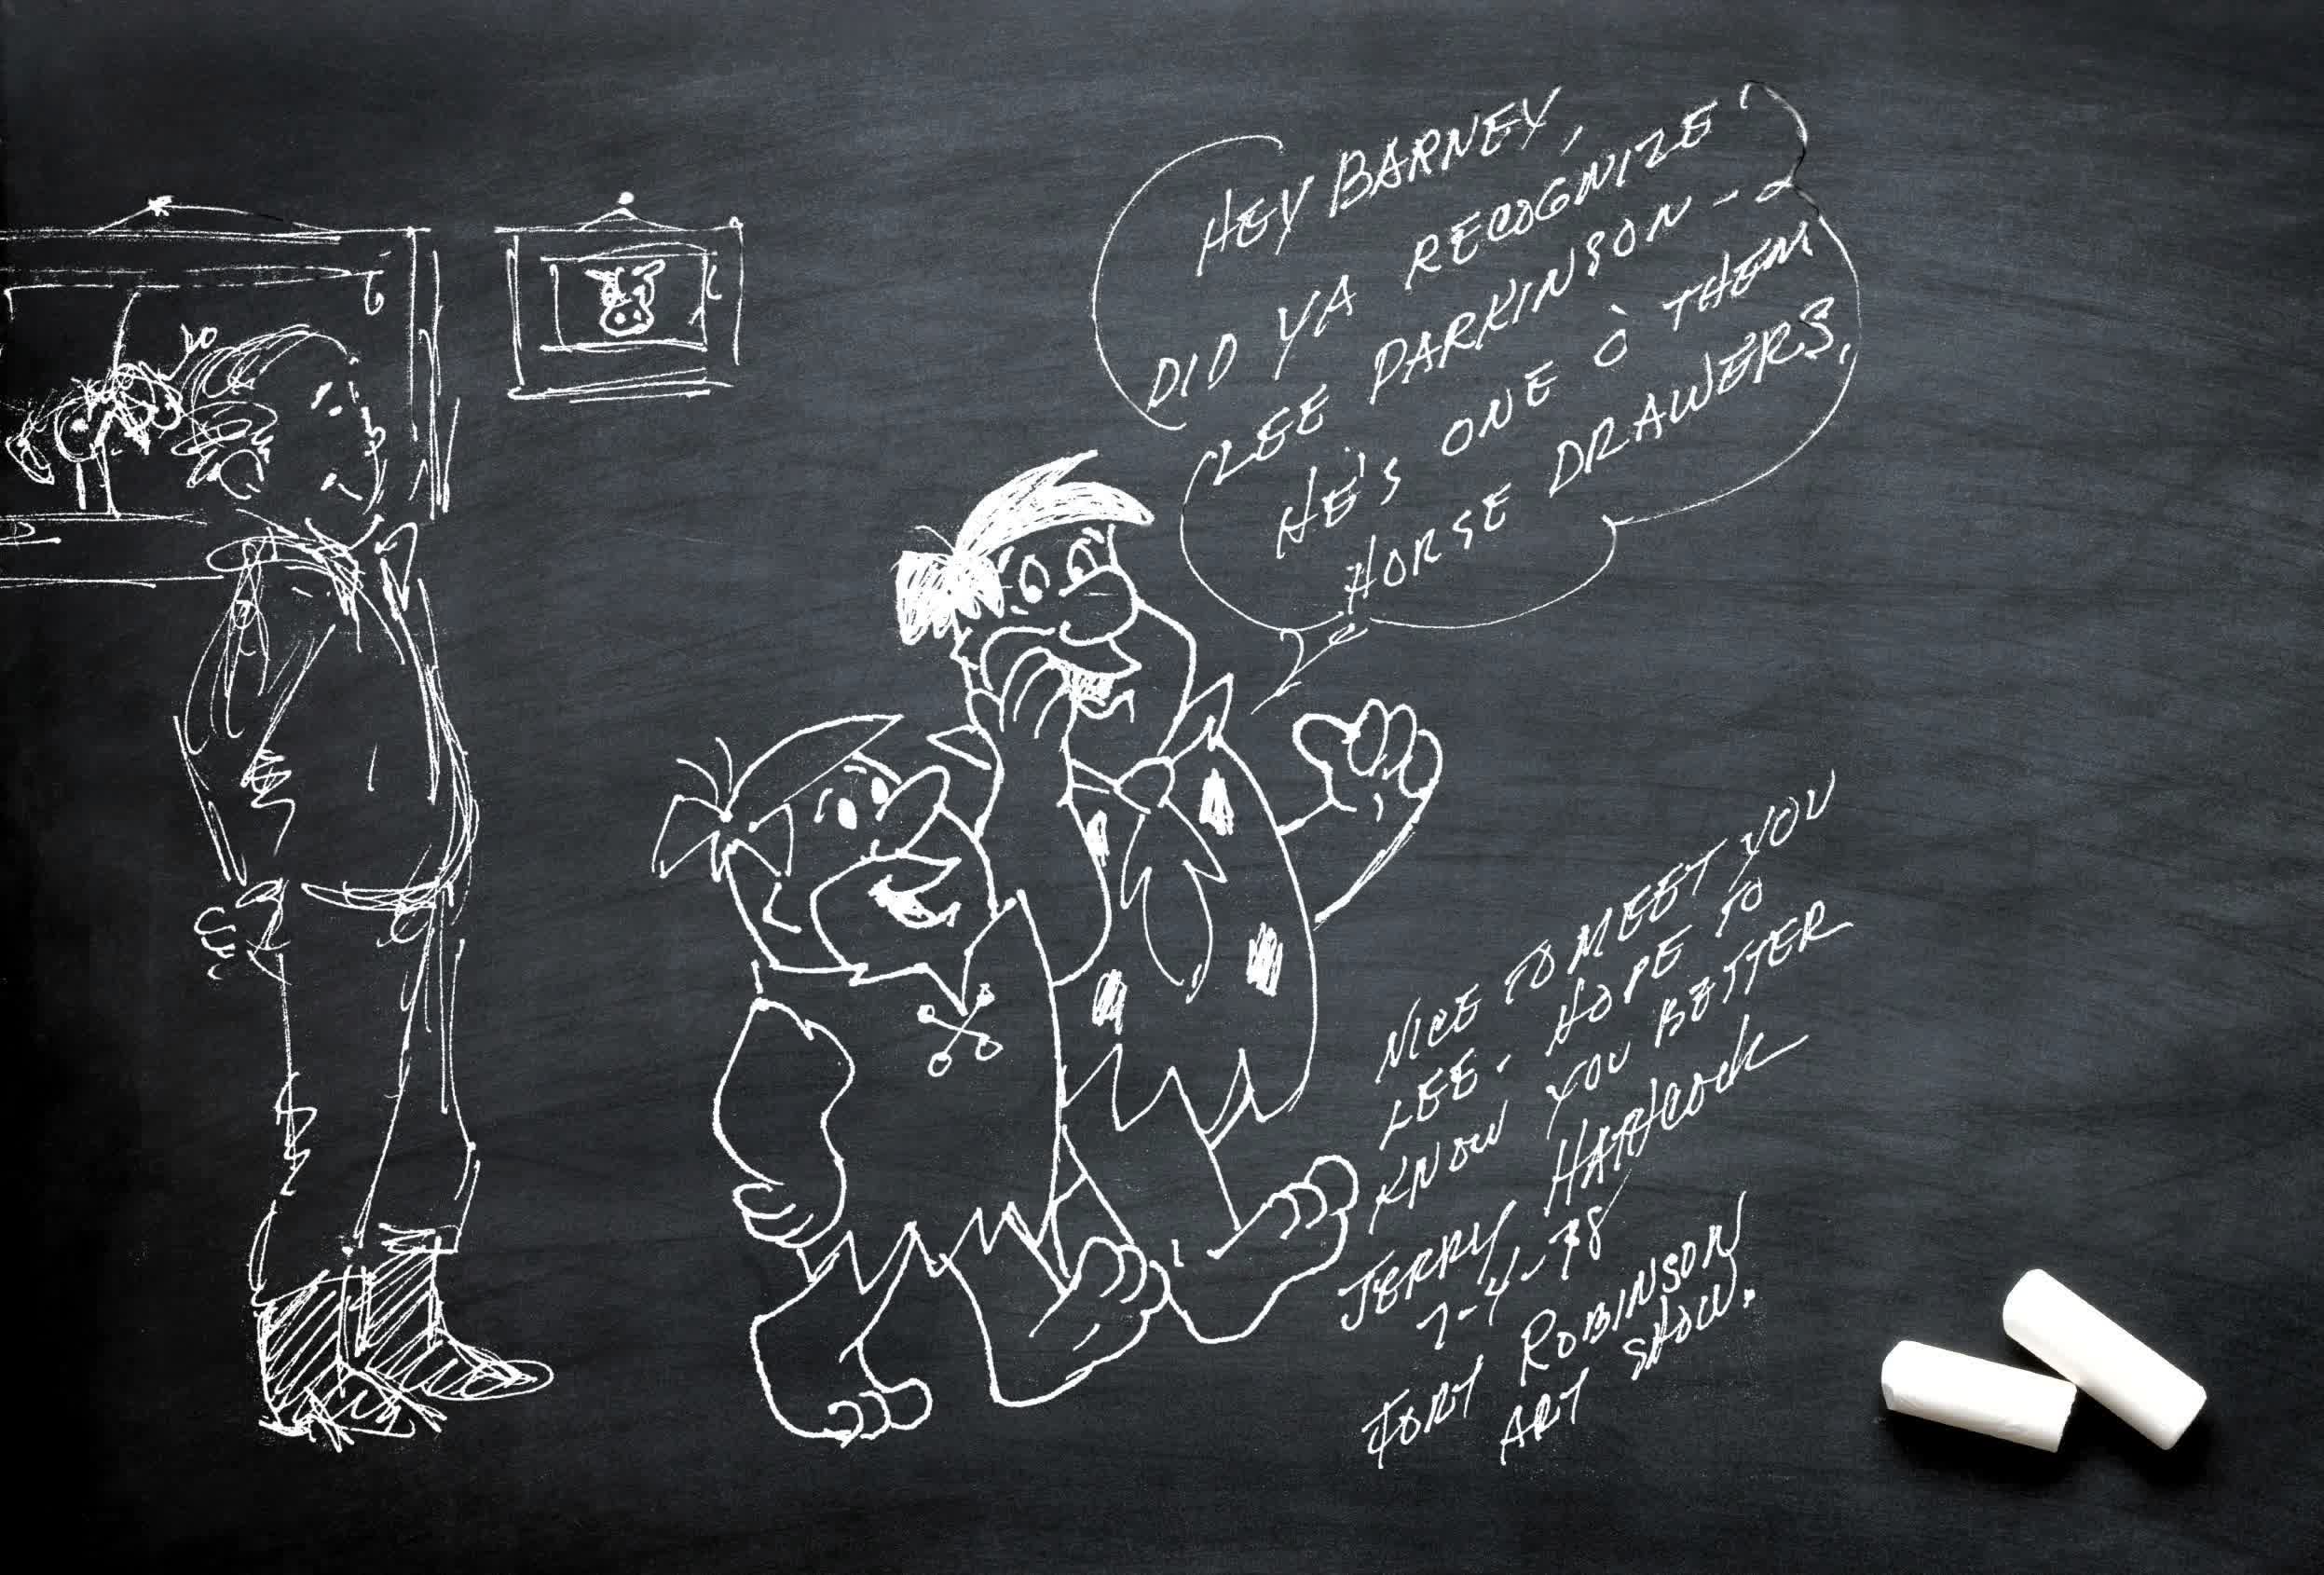 HEY BARNEY,
DID YA RECOGNIZE
LEE PARKINSON--
HE'S ONE O' THEM
HORSE DRAWERS.
NICE TO MEET YOU
LEE - HOPE TO
KNOW YOU BETTER
JERRY HATHCOCK
7-4-78
FORT ROBINSON
ART SHOW.